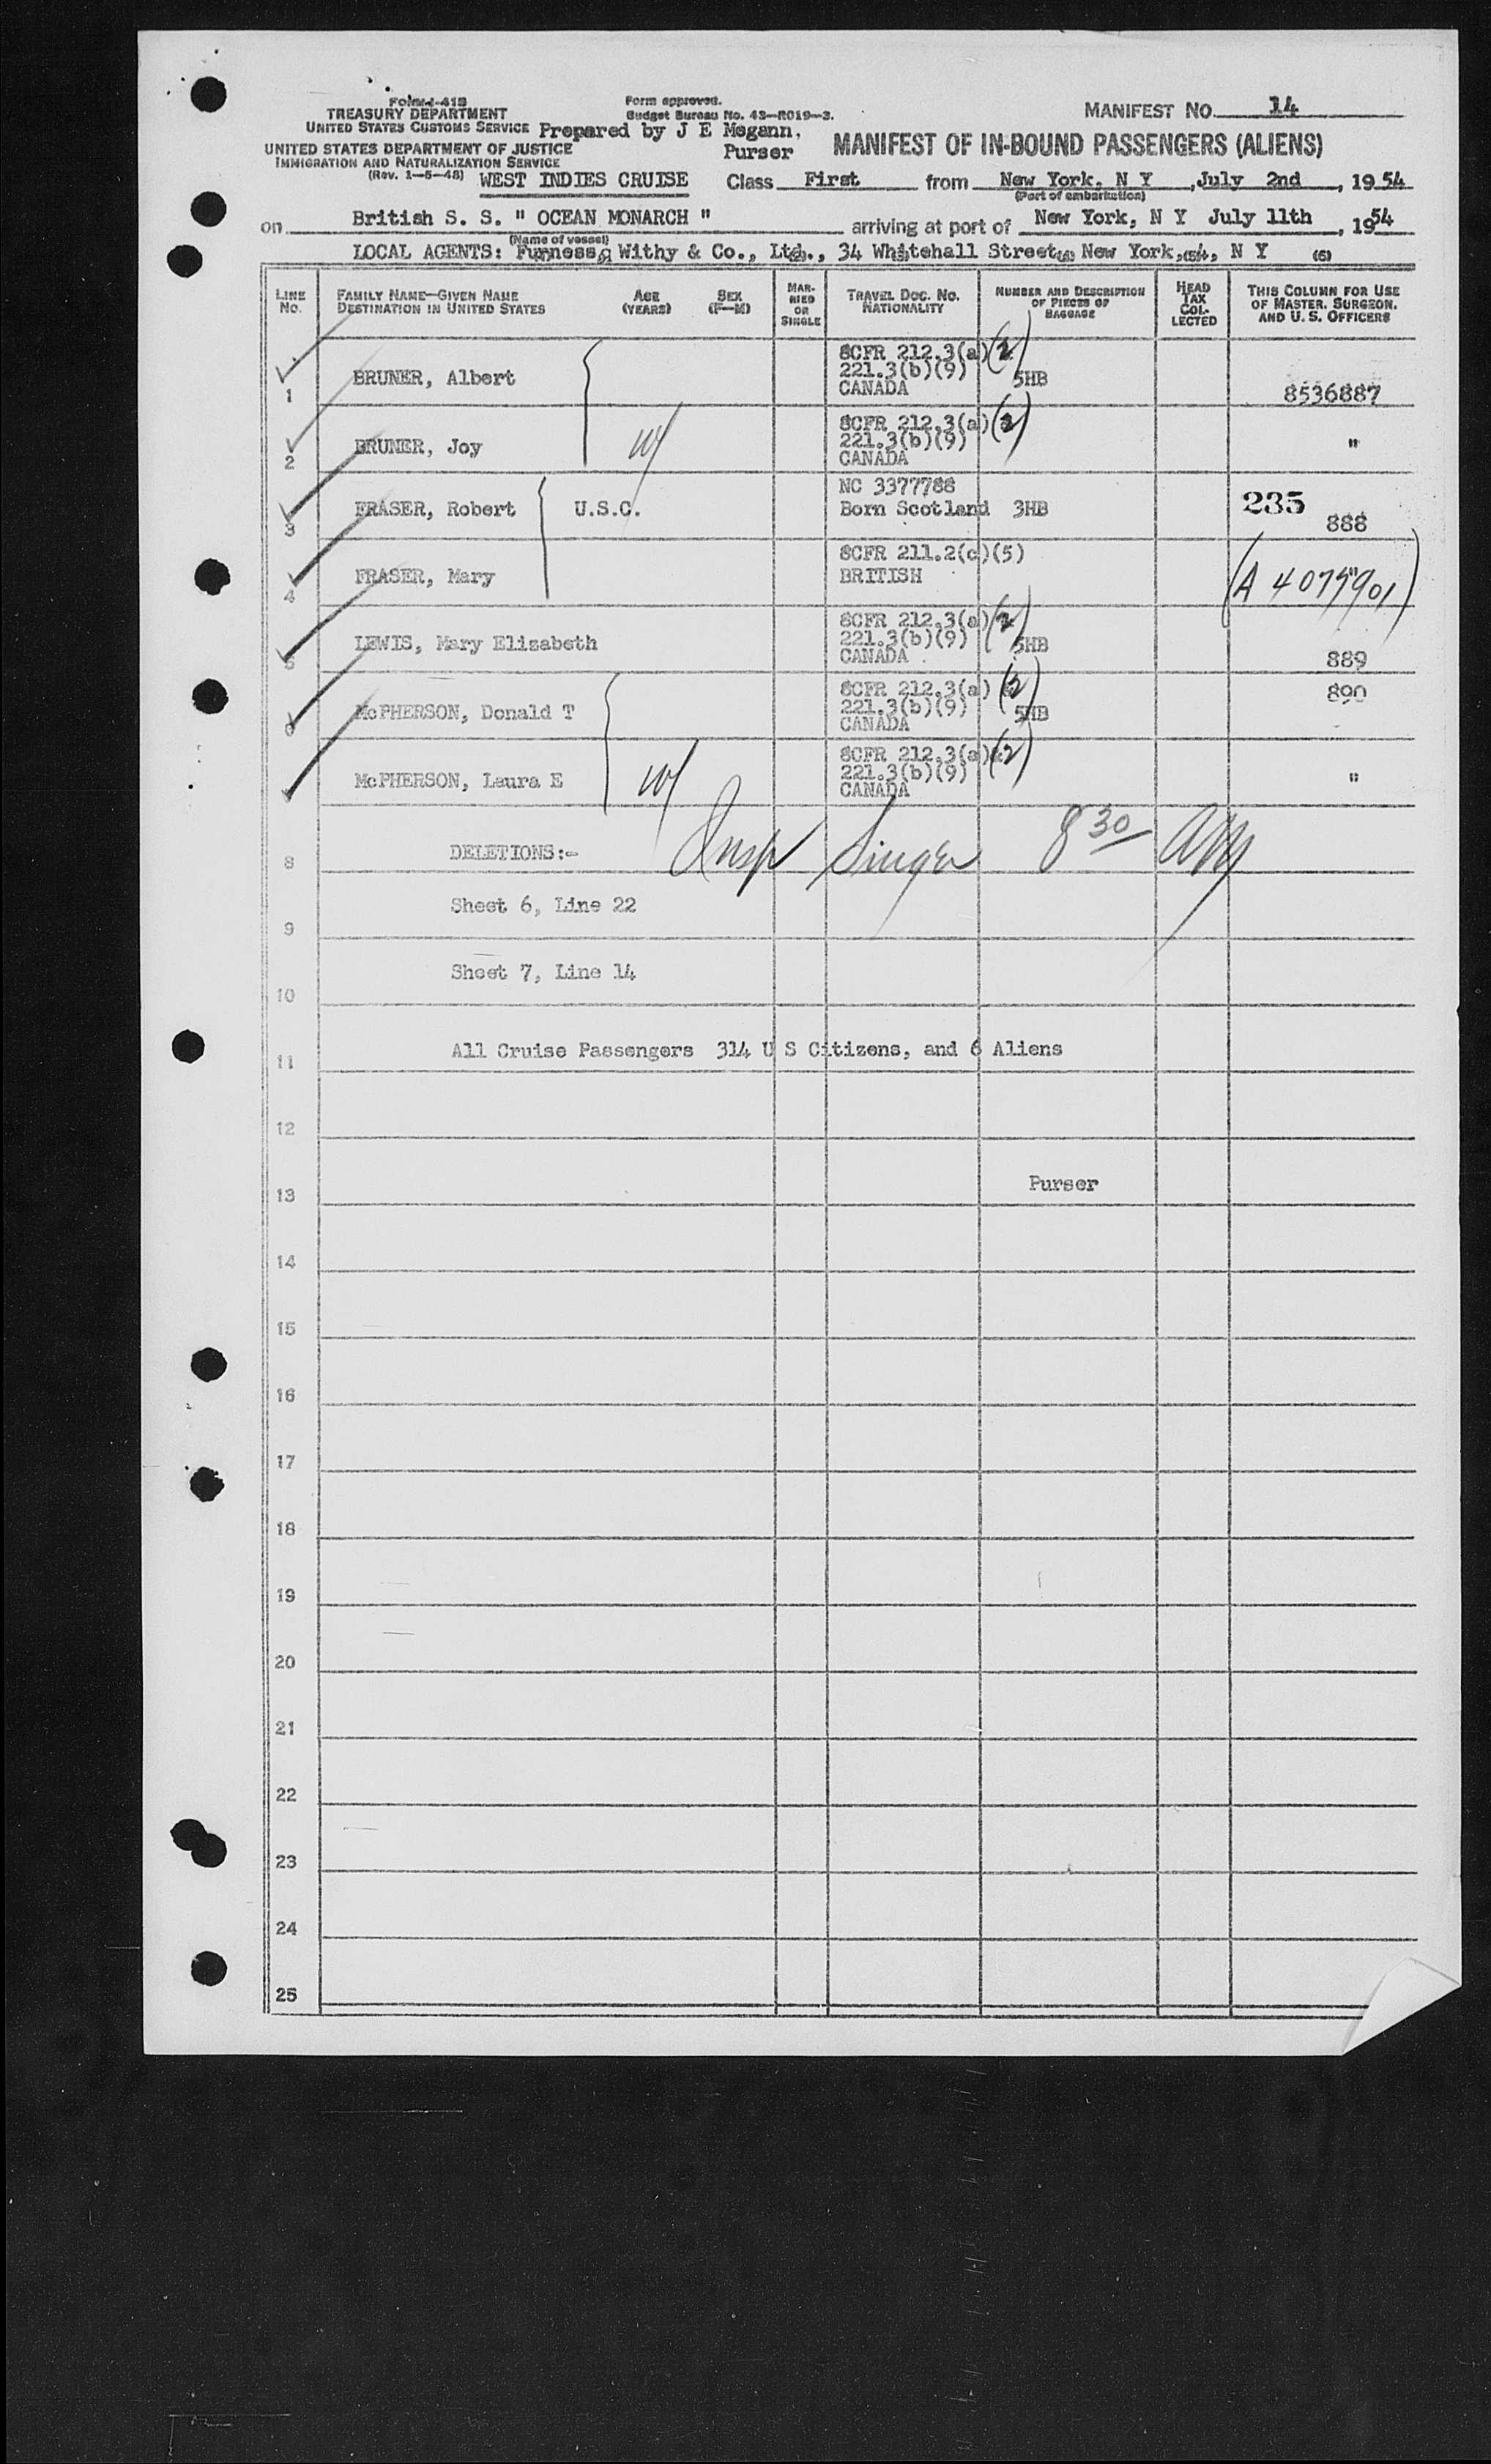 Form I-418
TREASURY DEPARTMENT
UNITED STATES CUSTOMS SERVICE
UNITED STATES DEPARTMENT OF JUSTICE
IMMIGRATION AND NATURALIZATION SERVICE
(Rev. 1-5-48)
Form approved.
Budget Bureau No. 43-R019-3.
Prepared by J E Megann,
Purser
MANIFEST NO. 14
MANIFEST OF IN-BOUND PASSENGERS (ALIENS)
WEST INDIES CRUISE Class First from New York, N Y, July 2nd, 1954
(Port of embarkation)
on British S. S. " OCEAN MONARCH " arriving at port of New York, N Y July 11th, 1954
(Name of vessel)
LOCAL AGENTS: Furness, Withy & Co., Ltd., 34 Whitehall Street, New York, 4, N Y
(3) (4) (5) (6)
LINE NO. FAMILY NAME—GIVEN NAME DESTINATION IN UNITED STATES AGE (YEARS) SEX (F—M) MARRIED OR SINGLE TRAVEL DOC. NO. NATIONALITY NUMBER AND DESCRIPTION OF PIECES OF BAGGAGE HEAD TAX COLLECTED THIS COLUMN FOR USE OF MASTER, SURGEON, AND U. S. OFFICERS
8CFR 212.3(a)(2)
221.3(b)(9)
1 BRUNER, Albert CANADA 5HB 8536887
8CFR 212.3(a)(2)
221.3(b)(9)
2 BRUNER, Joy w/ CANADA "
NC 3377788
3 FRASER, Robert U.S.C. Born Scotland 3HB 235 888
8CFR 211.2(c)(5)
4 FRASER, Mary BRITISH " (A 4075901)
8CFR 212.3(a)(2)
221.3(b)(9)
5 LEWIS, Mary Elizabeth CANADA 5HB 889
8CFR 212.3(a)(2)
221.3(b)(9)
6 McPHERSON, Donald T CANADA 5HB 890
8CFR 212.3(a)(2)
221.3(b)(9)
7 McPHERSON, Laura E w/ CANADA "
8 DELETIONS:- Insp Singer 8 30
9 Sheet 6, Line 22
10 Sheet 7, Line 14
11 All Cruise Passengers 314 U S Citizens, and 6 Aliens
12
13 Purser
14
15
16
17
18
19
20
21
22
23
24
25